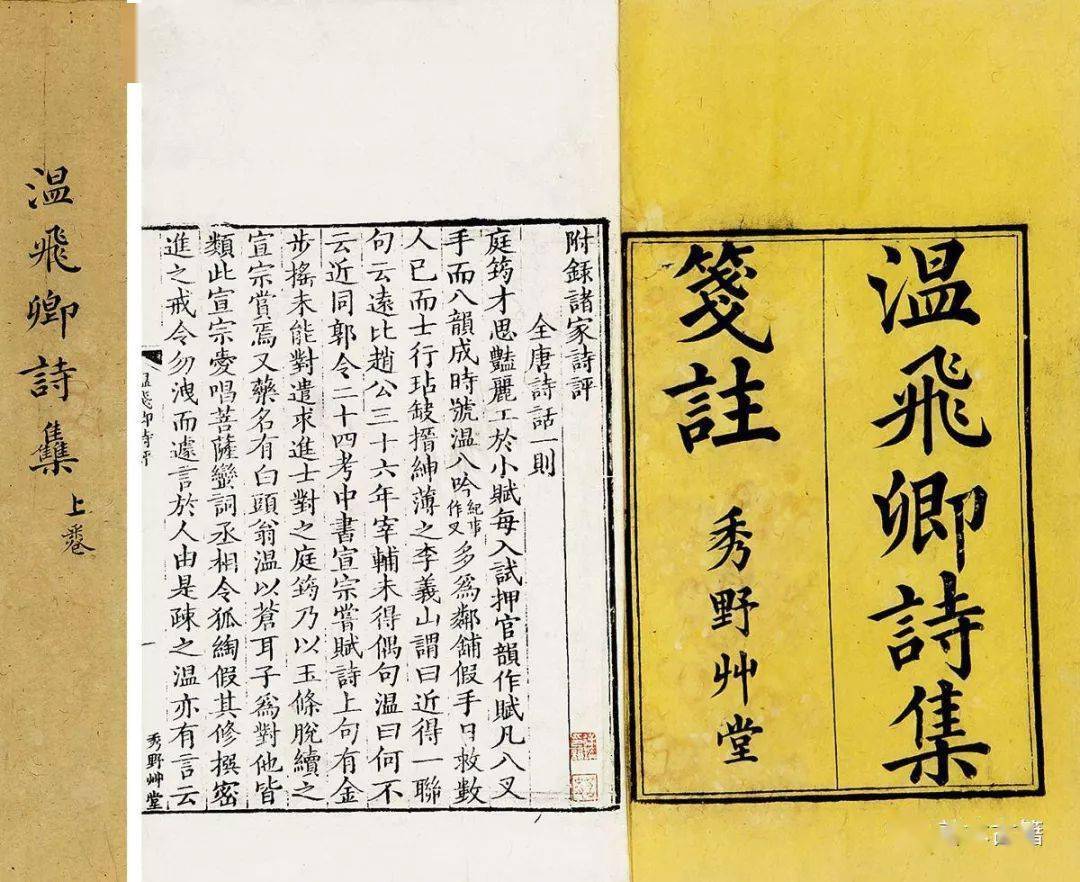 溫飛卿詩集
箋註
秀野艸堂
附錄諸家詩評
全唐詩話一則
庭筠才思豔麗工於小賦每入試押官韻作賦凡八叉
手而八韻成時號溫八吟紀事作叉多爲鄰舖假手日救數
人已而士行玷缺搢紳薄之李義山謂曰近得一聯
句云遠比趙公三十六年宰輔未得偶句溫曰何不
云近同郭令二十四考中書宣宗嘗賦詩上句有金
步搖未能對遣求進士對之庭筠乃以玉條脫續之
宣宗賞焉又藥名有白頭翁溫以蒼耳子爲對他皆
類此宣宗愛唱菩薩蠻詞丞相令狐綯假其修撰密
進之戒令勿洩而遽言於人由是疎之溫亦有言云
溫飛卿詩評
一
秀野艸堂
溫飛卿詩集
上卷